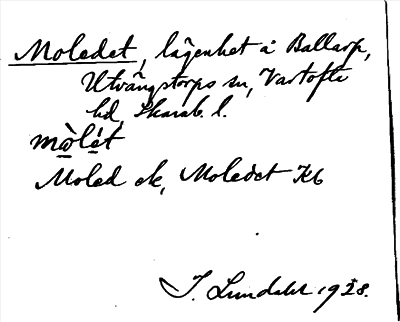 Moledet, lägenhet å Ballarp,
Utvängstorps sn, Vartofta
hd, Skarab. l.
mòlét
Moled ek, Moledet Kb
I. Lundahl 1928.